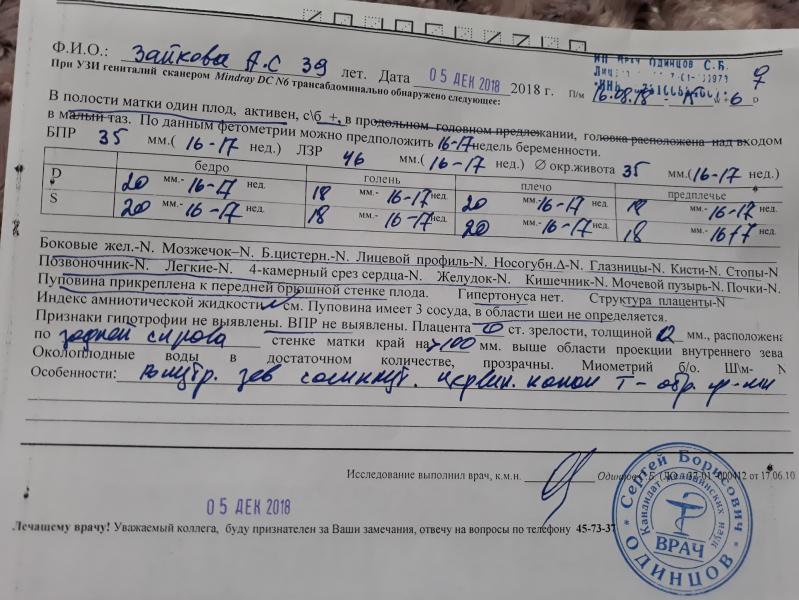 Ф.И.О.: Зайкова А.С 39 лет. Дата 05 ДЕК 2018 2018 г. П/м 16.08.18
ИП ВРАЧ ОДИНЦОВ С.Б.
При УЗИ гениталий сканером Mindray DC N6 трансабдоминально обнаружено следующее:
В полости матки один плод, активен, с\б +, в продольном головном предлежании, головка расположена над входом
в малый таз. По данным фетометрии можно предположить 16-17 недель беременности.
БПР 35 мм.( 16-17 нед.) ЛЗР 46 мм.( 16-17 нед.) Ø окр.живота 35 мм.(16-17 нед.)
бедро голень плечо предплечье
D 20 мм.- 16-17 нед. 18 мм.- 16-17 нед. 20 мм.- 16-17 нед. 18 мм.- 16-17 нед.
S 20 мм.- 16-17 нед. 18 мм.- 16-17 нед. 20 мм.- 16-17 нед. 18 мм.- 16-17 нед.
Боковые жел.-N. Мозжечок–N. Б.цистерн.-N. Лицевой профиль-N. Носогубн.Δ-N. Глазницы-N. Кисти-N. Стопы-N
Позвоночник-N. Легкие-N. 4-камерный срез сердца-N. Желудок-N. Кишечник-N. Мочевой пузырь-N. Почки-N.
Пуповина прикреплена к передней брюшной стенке плода. Гипертонуса нет. Структура плаценты-N
Индекс амниотической жидкости N см. Пуповина имеет 3 сосуда, в области шеи не определяется.
Признаки гипотрофии не выявлены. ВПР не выявлены. Плацента 0 ст. зрелости, толщиной 12 мм., расположена
по задней справа стенке матки край на >100 мм. выше области проекции внутреннего зева
Околоплодные воды в достаточном количестве, прозрачны. Миометрий б/о. Ш\м- N
Особенности: внутр. зев сомкнут. цервик. канал Т - обр. ф-мы
Исследование выполнил врач, к.м.н. Одинцов С.Б. от 17.06.10
05 ДЕК 2018
Лечащему врачу! Уважаемый коллега, буду признателен за Ваши замечания, отвечу на вопросы по телефону 45-73-37
Сергей Борисович
Кандидат медицинских наук
ВРАЧ
ОДИНЦОВ